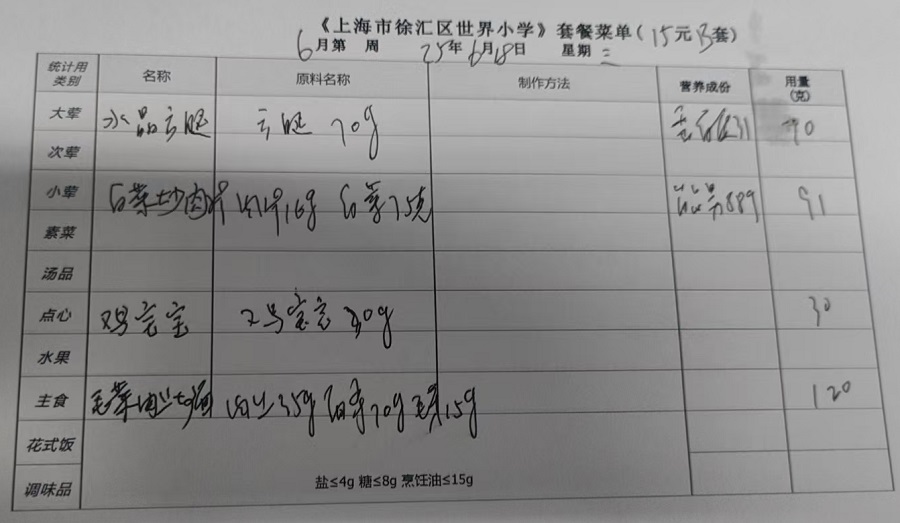 《上海市徐汇区世界小学》套餐菜单(15元B套)
6月第 周 25年6月18日 星期三
统计用类别 名称 原料名称 制作方法 营养成份 用量(克)
大荤 水晶 70g 70
次荤
小荤 白菜炒肉片 肉片16g 白菜75克 91
素菜
汤品
点心 鸡 30g 30
水果
主食 肉丝35g 70g 15g 120
花式饭
调味品 盐≤4g 糖≤8g 烹饪油≤15g